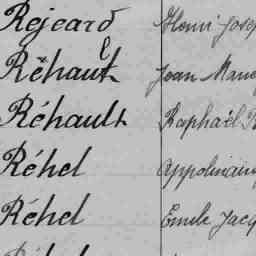 Rejeard Henri Josep
Réhault Jean Marie
Réhault Raphaël P
Réhel Appolinaire
Réhel Emile Jacq